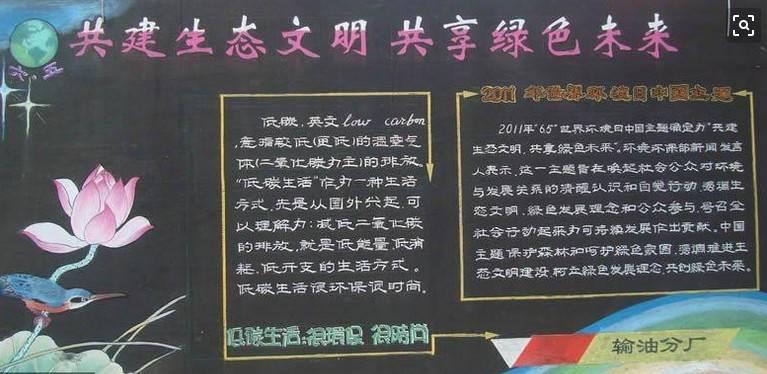 共建生态文明 共享绿色未来
六·五
低碳,英文low carbon
,意指较低(更低)的温室气
体(二氧化碳为主)的排放。
“低碳生活”作为一种生活
方式,先是从国外兴起,可
以理解为:减低二氧化碳
的排放,就是低能量、低消
耗、低开支的生活方式。
低碳生活很环保很时尚。
低碳生活:很环保 很时尚
2011年世界环境日中国主题
2011年“65”世界环境日中国主题确定为“共建
生态文明,共享绿色未来”。环境环保部新闻发言
人表示,这一主题旨在唤起社会公众对环境
与发展关系的清醒认识和自觉行动,强调生
态文明、绿色发展理念和公众参与,号召全
社会行动起来为可持续发展作出贡献。中国
主题保护森林和呵护绿色家园,强调推进生
态文明建设,树立绿色发展理念,共创绿色未来。
输油分厂